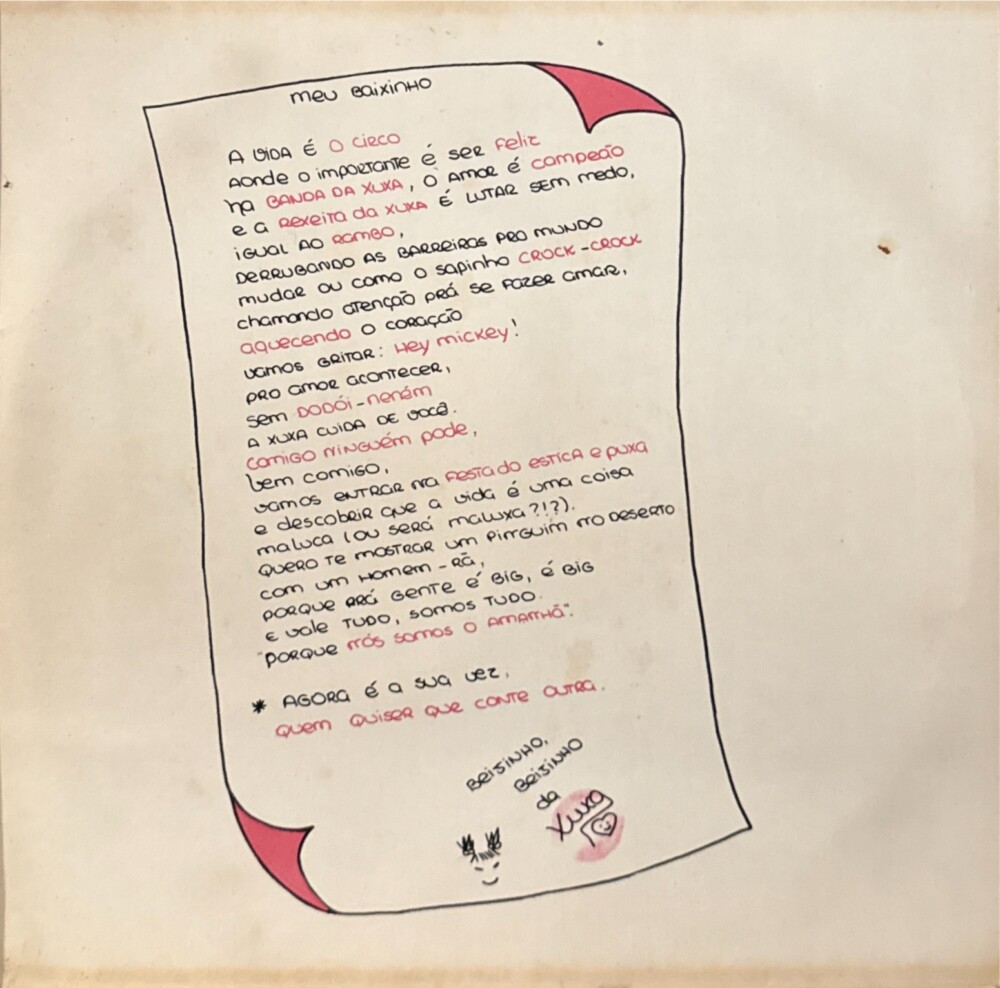 meu Baixinho
A VIDA É O CIRCO
AONDE O IMPORTANTE É SER FELIZ
NA BANDA DA XUXA, O AMOR É CAMPEÃO
e a REXEITA da XUXA É LUTAR SEM MEDO,
IGUAL AO RAMBO,
DERRUBANDO AS BARREIRAS PRO MUNDO
mudar ou como o sapinho CROCK-CROCK
chamando atenção prá se fazer amar,
aquecendo o coração
vamos GRITAR: Hey mickey!
PRO AMOR ACONTECER,
sem DODÓI-neném
A XUXA CUIDA DE VOCÊ.
comigo ninguém pode,
vem comigo,
vamos entrar na festa do estica e puxa
e descobrir que a vida é uma coisa
maluca (ou será maluxa?!?).
QUERO TE MOSTRAR UM PINGUIM NO DESERTO
com um Homem-RÃ,
PORQUE PRÁ GENTE É BIG, É BIG
E VALE TUDO, SOMOS TUDO.
"PORQUE NÓS SOMOS O AMANHÃ".
* AGORA É A SUA VEZ,
QUEM QUISER QUE CONTE OUTRA.
BEIJINHO,
BEIJINHO
da
Xuxa